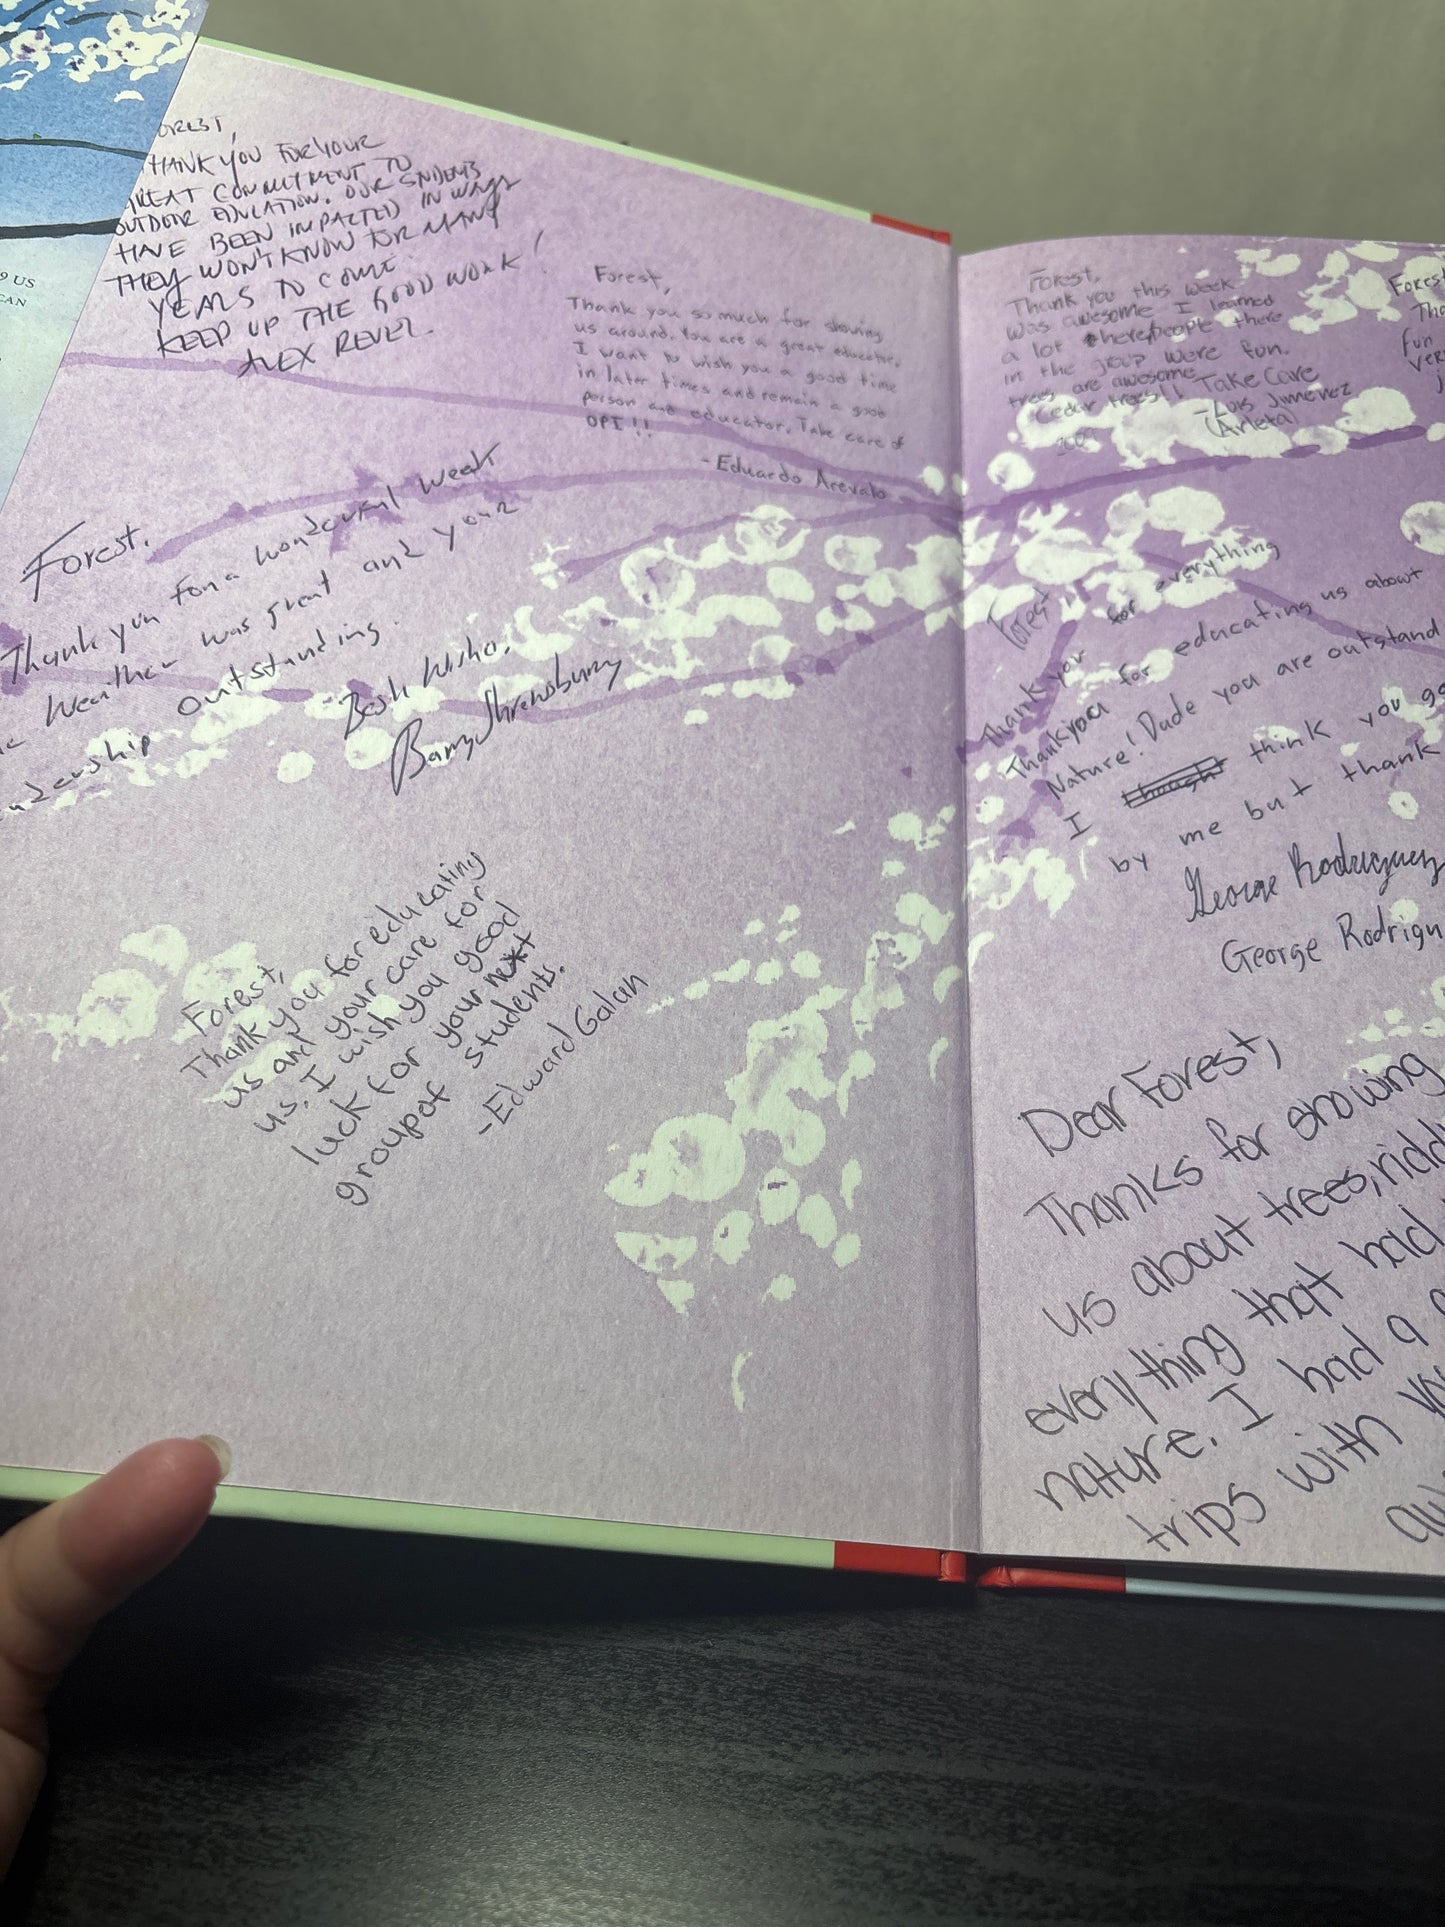 9 US
CAN
OREST,
THANK YOU FOR YOUR
REAT COMMITMENT TO
OUTDOOR EDUCATION. OUR STUDENTS
HAVE BEEN IMPACTED IN WAYS
THEY WON'T KNOW FOR MANY
YEARS TO COME.
KEEP UP THE GOOD WORK!
ALEX REVEL.
Forest,
Thank you so much for showing
us around. You are a great educator.
I want to wish you a good time
in later times and remain a good
person and educator. Take care of
OPI!!
- Eduardo Arevalo
Forest,
Thank you for a wonderful week
weather was great and your
outstanding.
Best Wishes,
Barry Shrewsbury
Forest,
Thank you for educating
us and your care for
us. I wish you good
luck for your next
group of students.
-Edward Galan
Forest,
Thank you this week
was awesome I learned
a lot there people there
in the group were fun.
trees are awesome
Cedar trees!! Take Care
- Luis Jimenez
(Arleta)
Forest
Tha
fun
ver
Forest
Thank you for everything
Thankyou for educating us about
Nature! Dude you are outstand
I think you go
by me but thank
George Rodriguez
George Rodrigu
Dear Forest,
Thanks for showing
us about trees, ridd
everything that had
nature. I had a g
trips with yo
aw